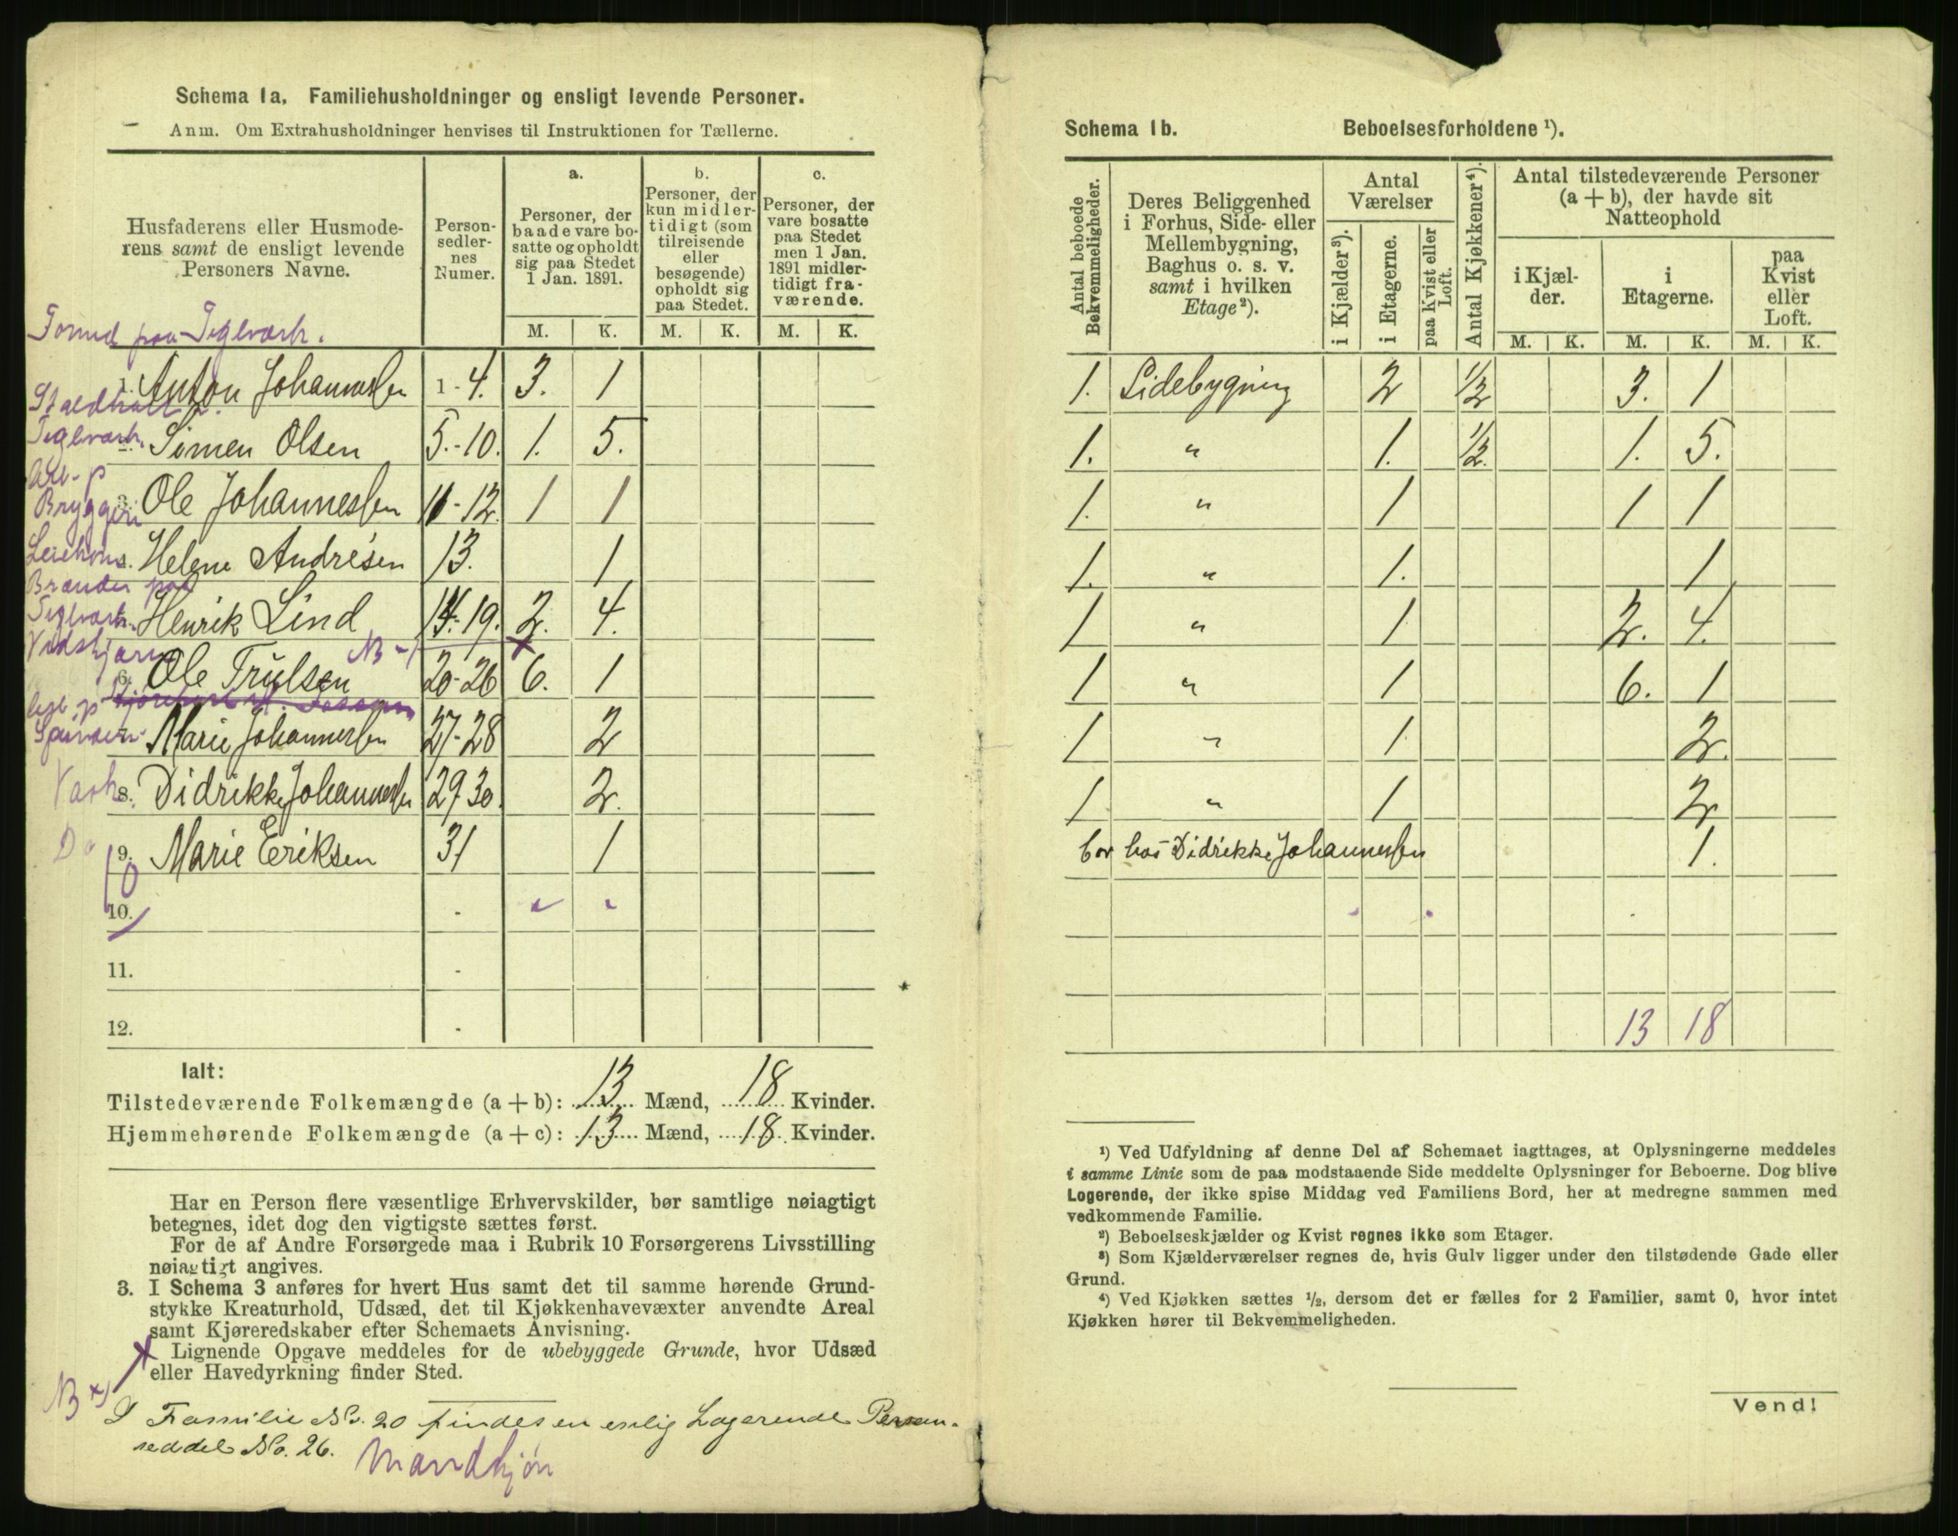 Schema 1a. Familiehusholdninger og ensligt levende Personer.
Anm. Om Extrahusholdninger henvises til Instruktionen for Tællerne.
Husfaderens eller Husmode-
rens samt de ensligt levende
Personers Navne.
Person-
sedler-
nes
Numer.
a.
Personer, der
baade vare bo-
satte og opholdt
sig paa Stedet
1 Jan. 1891.
b.
Personer, der
kun midler-
tidigt (som
tilreisende
eller
besøgende)
opholdt sig
paa Stedet.
c.
Personer, der
vare bosatte
paa Stedet
men 1 Jan.
1891 midler-
tidigt fra-
værende.
M. K. M. K. M. K.
Formd paa Teglværk.
1. Anton Johannessen 1-4. 3. 1
Teglværk. Simen Olsen 5.-10. 1. 5.
Arb. p
Bryggeri 3. Ole Johannessen 11-12. 1 1
Helene Andrésen 13. 1
Brænder paa
Teglværk. Henrik Lind 14-19. 2. 4.
NB
6. Ole Trulsen 20-26 6. 1
Spinderi Marie Johannessen 27-28 2
Vask 8. Didrikke Johannessen 29-30. 2.
Do 9. Marie Eriksen 31 1
10.
11.
12.
Ialt:
Tilstedeværende Folkemængde (a + b): 13 Mænd, 18 Kvinder.
Hjemmehørende Folkemængde (a + c): 13 Mænd, 18 Kvinder.
Har en Person flere væsentlige Erhvervskilder, bør samtlige nøiagtigt
betegnes, idet dog den vigtigste sættes først.
For de af Andre Forsørgede maa i Rubrik 10 Forsørgerens Livsstilling
nøiagtigt angives.
3. I Schema 3 anføres for hvert Hus samt det til samme hørende Grund-
stykke Kreaturhold, Udsæd, det til Kjøkkenhavevæxter anvendte Areal
samt Kjøreredskaber efter Schemaets Anvisning.
Lignende Opgave meddeles for de ubebyggede Grunde, hvor Udsæd
eller Havedyrkning finder Sted.
NB x)
I Familie No. 20 findes en enslig Logerende Person-
seddel No. 26. Mandkjøn
Schema 1b. Beboelsesforholdene ¹).
Antal beboede
Bekvemmeligheder.
Deres Beliggenhed
i Forhus, Side- eller
Mellembygning,
Baghus o. s. v.
samt i hvilken
Etage²).
Antal
Værelser
i Kjælder³).
i Etagerne.
paa Kvist eller
Loft.
Antal Kjøkkener⁴).
Antal tilstedeværende Personer
(a + b), der havde sit
Natteophold
i Kjæl-
der.
i
Etagerne.
paa
Kvist
eller
Loft.
M. K. M. K. M. K.
1. Sidebygning 2 1/2 3. 1
1. " 1. 1/2. 1. 5.
1. " 1 1 1
1. " 1. 1
1 " 1 2. 4.
1 " 1 6. 1
1 " 1. 2
1 " 1 2
bor hos Didrikke Johannessen 1.
13 18
¹) Ved Udfyldning af denne Del af Schemaet iagttages, at Oplysningerne meddeles
i samme Linie som de paa modstaaende Side meddelte Oplysninger for Beboerne. Dog blive
Logerende, der ikke spise Middag ved Familiens Bord, her at medregne sammen med
vedkommende Familie.
²) Beboelseskjælder og Kvist regnes ikke som Etager.
³) Som Kjælderværelser regnes de, hvis Gulv ligger under den tilstødende Gade eller
Grund.
⁴) Ved Kjøkken sættes ½, dersom det er fælles for 2 Familier, samt 0, hvor intet
Kjøkken hører til Bekvemmeligheden.
Vend!